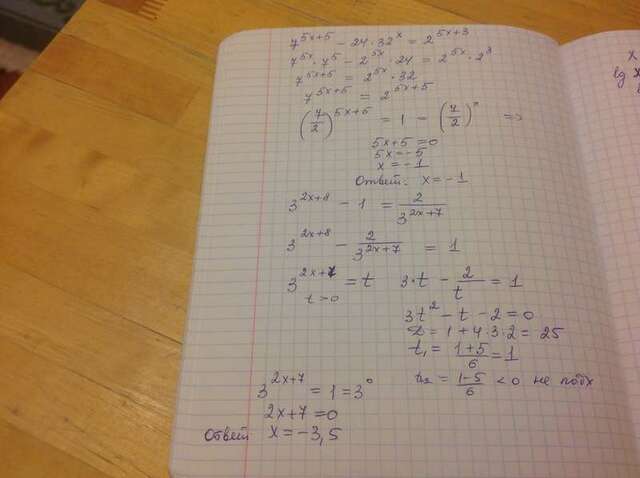 7^(5x+5) − 24·32^x = 2^(5x+3)
7^(5x)·7^5 − 2^(5x)·24 = 2^(5x)·2^3
7^(5x+5) = 2^(5x)·32
7^(5x+5) = 2^(5x+5)
(7/2)^(5x+5) = 1 = (7/2)^0 =>
5x+5 = 0
5x = −5
x = −1
Ответ: x = −1
3^(2x+8) − 1 = 2/3^(2x+7)
3^(2x+8) − 2/3^(2x+7) = 1
3^(2x+7) = t 3·t − 2/t = 1
t > 0
3t^2 − t − 2 = 0
D = 1+4·3·2 = 25
t₁ = (1+5)/6 = 1
t₂ = (1−5)/6 < 0 не подх
3^(2x+7) = 1 = 3^0
2x+7 = 0
Ответ x = −3,5
x
lg x